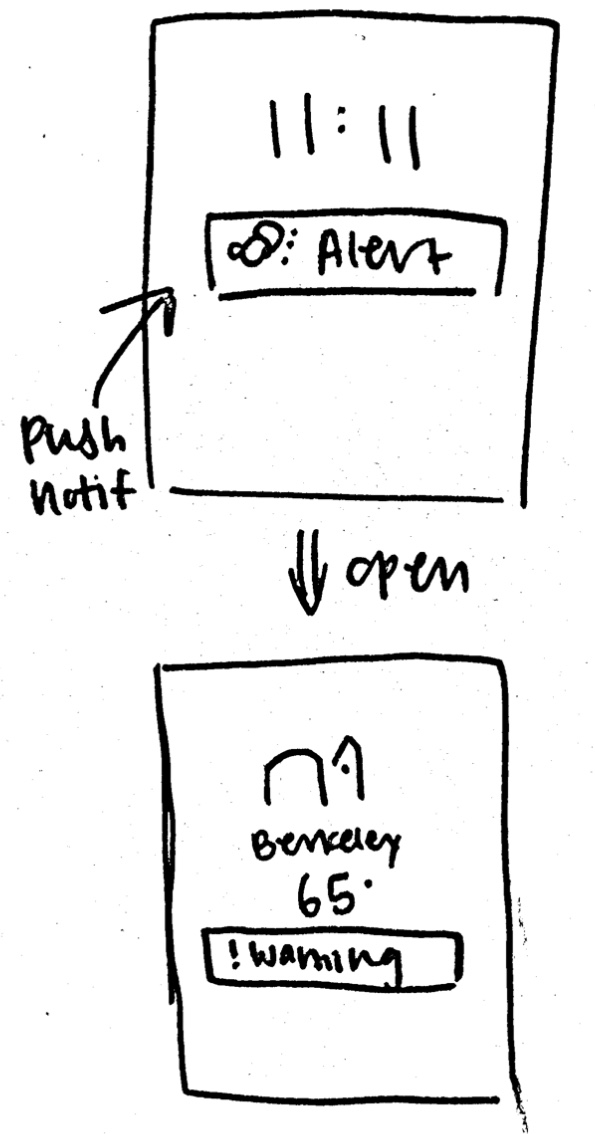 11:11
: Alert
push
notif
open
Berkeley
65°
! Warning